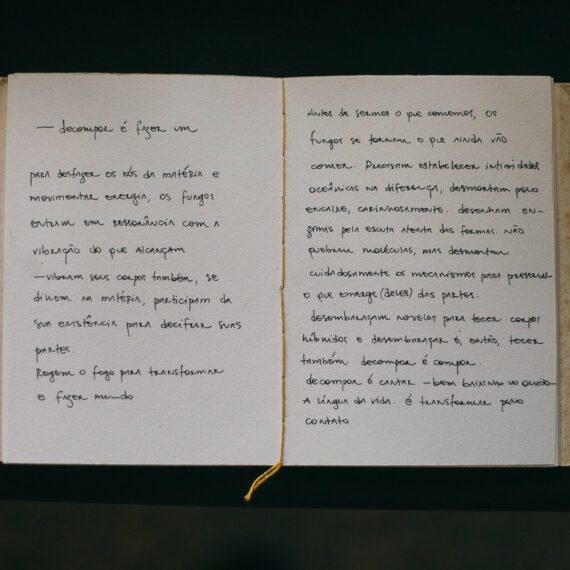 — decompor é fazer um
para desfazer os nós da matéria e
movimentar energia, os fungos
entram em ressonância com a
vibração do que alcançam
— vibram seus corpos também, se
diluem na matéria, participam da
sua existência para decifrar suas
partes.
Regem o fogo para transformar
e fazer mundo
Antes de sermos o que comemos, os
fungos se tornam o que ainda vão
comer. Precisam estabelecer intimidades
oceânicas na diferença, desmontam pelo
encaixe, carinhosamente. desenham en-
zimas pela escuta atenta das formas. não
quebram moléculas, mas desmontam
cuidadosamente os mecanismos para preservar
o que emerge (deles) das partes.
desembaraçam novelos para tecer corpos
híbridos e desembaraçar é, então, tecer
também. decompor é compor.
decompor é cantar — bem baixinho no ouvido
a língua da vida. é transformar pelo
contato